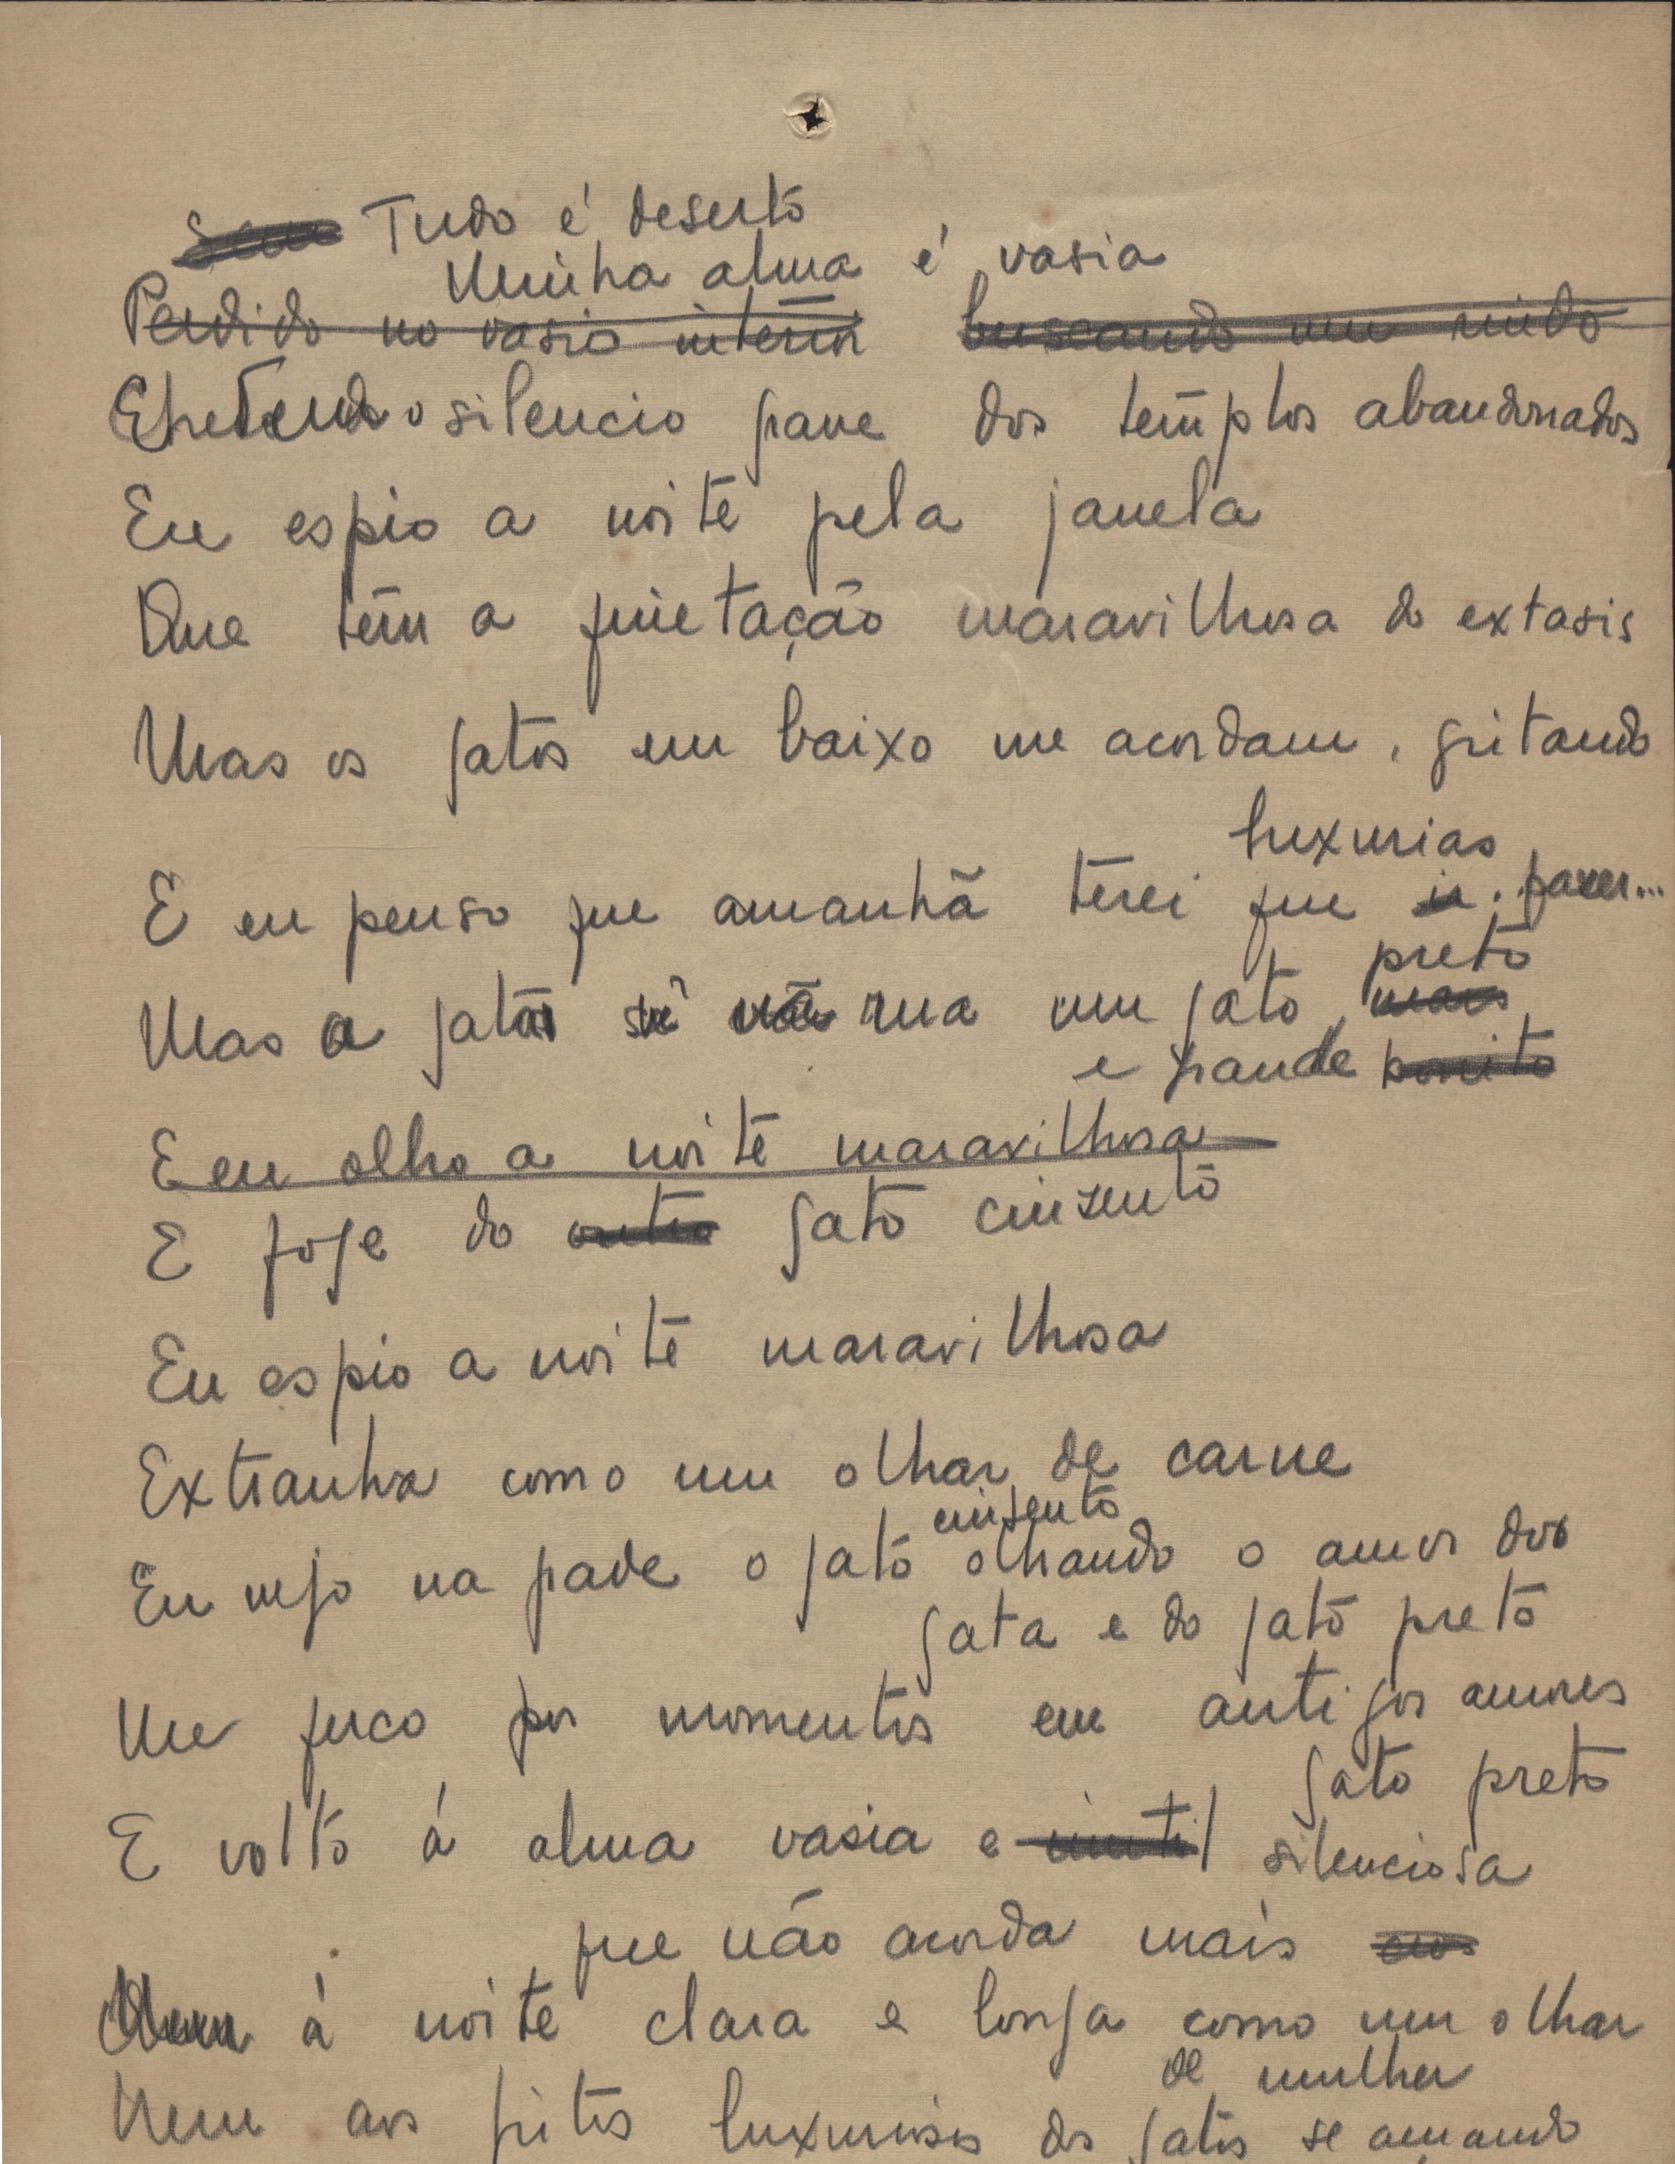 Tudo é deserto
Minha alma é vasia
Perdido no vasio interior buscando um ruido
E tendo o silencio grave dos templos abandonados
Eu espio a noite pela janela
Que tem a quietação maravilhosa do extasis
Mas os gatos em baixo me acordam, gritando
luxurias
E eu penso que amanhã terei que ir fazer...
preto
Mas a gata vê na rua um gato mais
e grande bonito
E eu olho a noite maravilhosa
E foge do outro gato cinzento
Eu espio a noite maravilhosa
Extranha como um olhar de carne
cinzento
Eu vejo na grade o gato olhando o amor da
gata e do gato preto
Me perco por momentos em antigos amores
gato preto
E volto á alma vasia e inutil silenciosa
que não acorda mais
Nem á noite clara e longa como um olhar
de mulher
Nem aos gritos luxuriosos dos gatos se amando